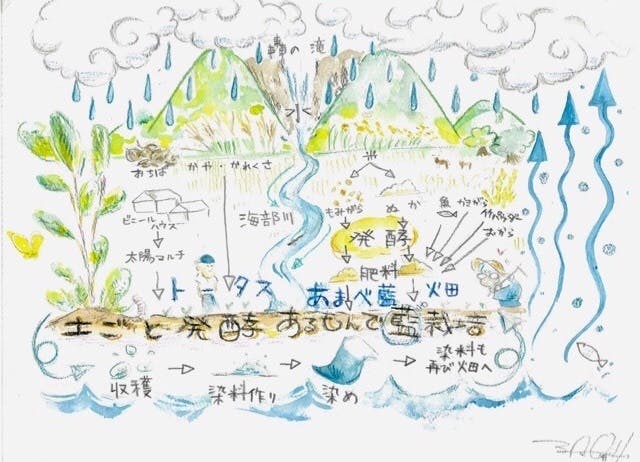 轟の滝
水
おちば
かや・かれくさ
米
ビニール
ハウス
海部川
もみがら
ぬか
魚
かきがら
竹パウダー
おから
発酵
太陽マルチ
肥料
トータス
あまべ藍
畑
土ごと発酵 あるもんで藍栽培
収穫
染料作り
染め
染料も
再び畑へ